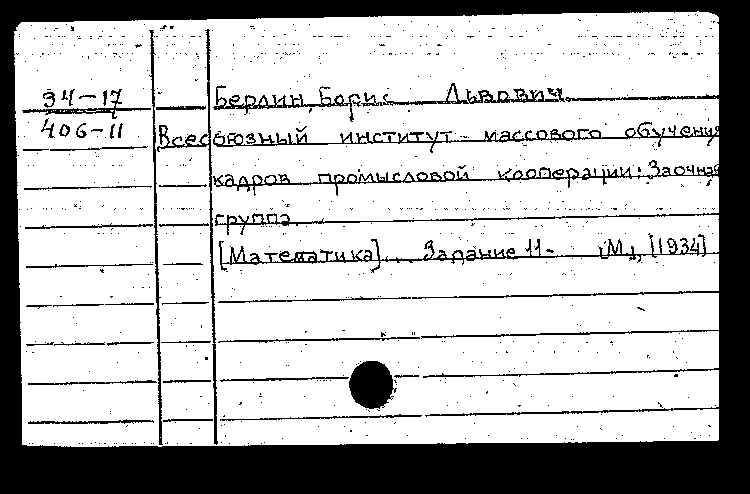 34-17
Берлин, Борис Львович.
406-11
Всесоюзный институт массового обучения
кадров промысловой кооперации: Заочная
группа
[Математика]... Задание 11- [М.], [1934]